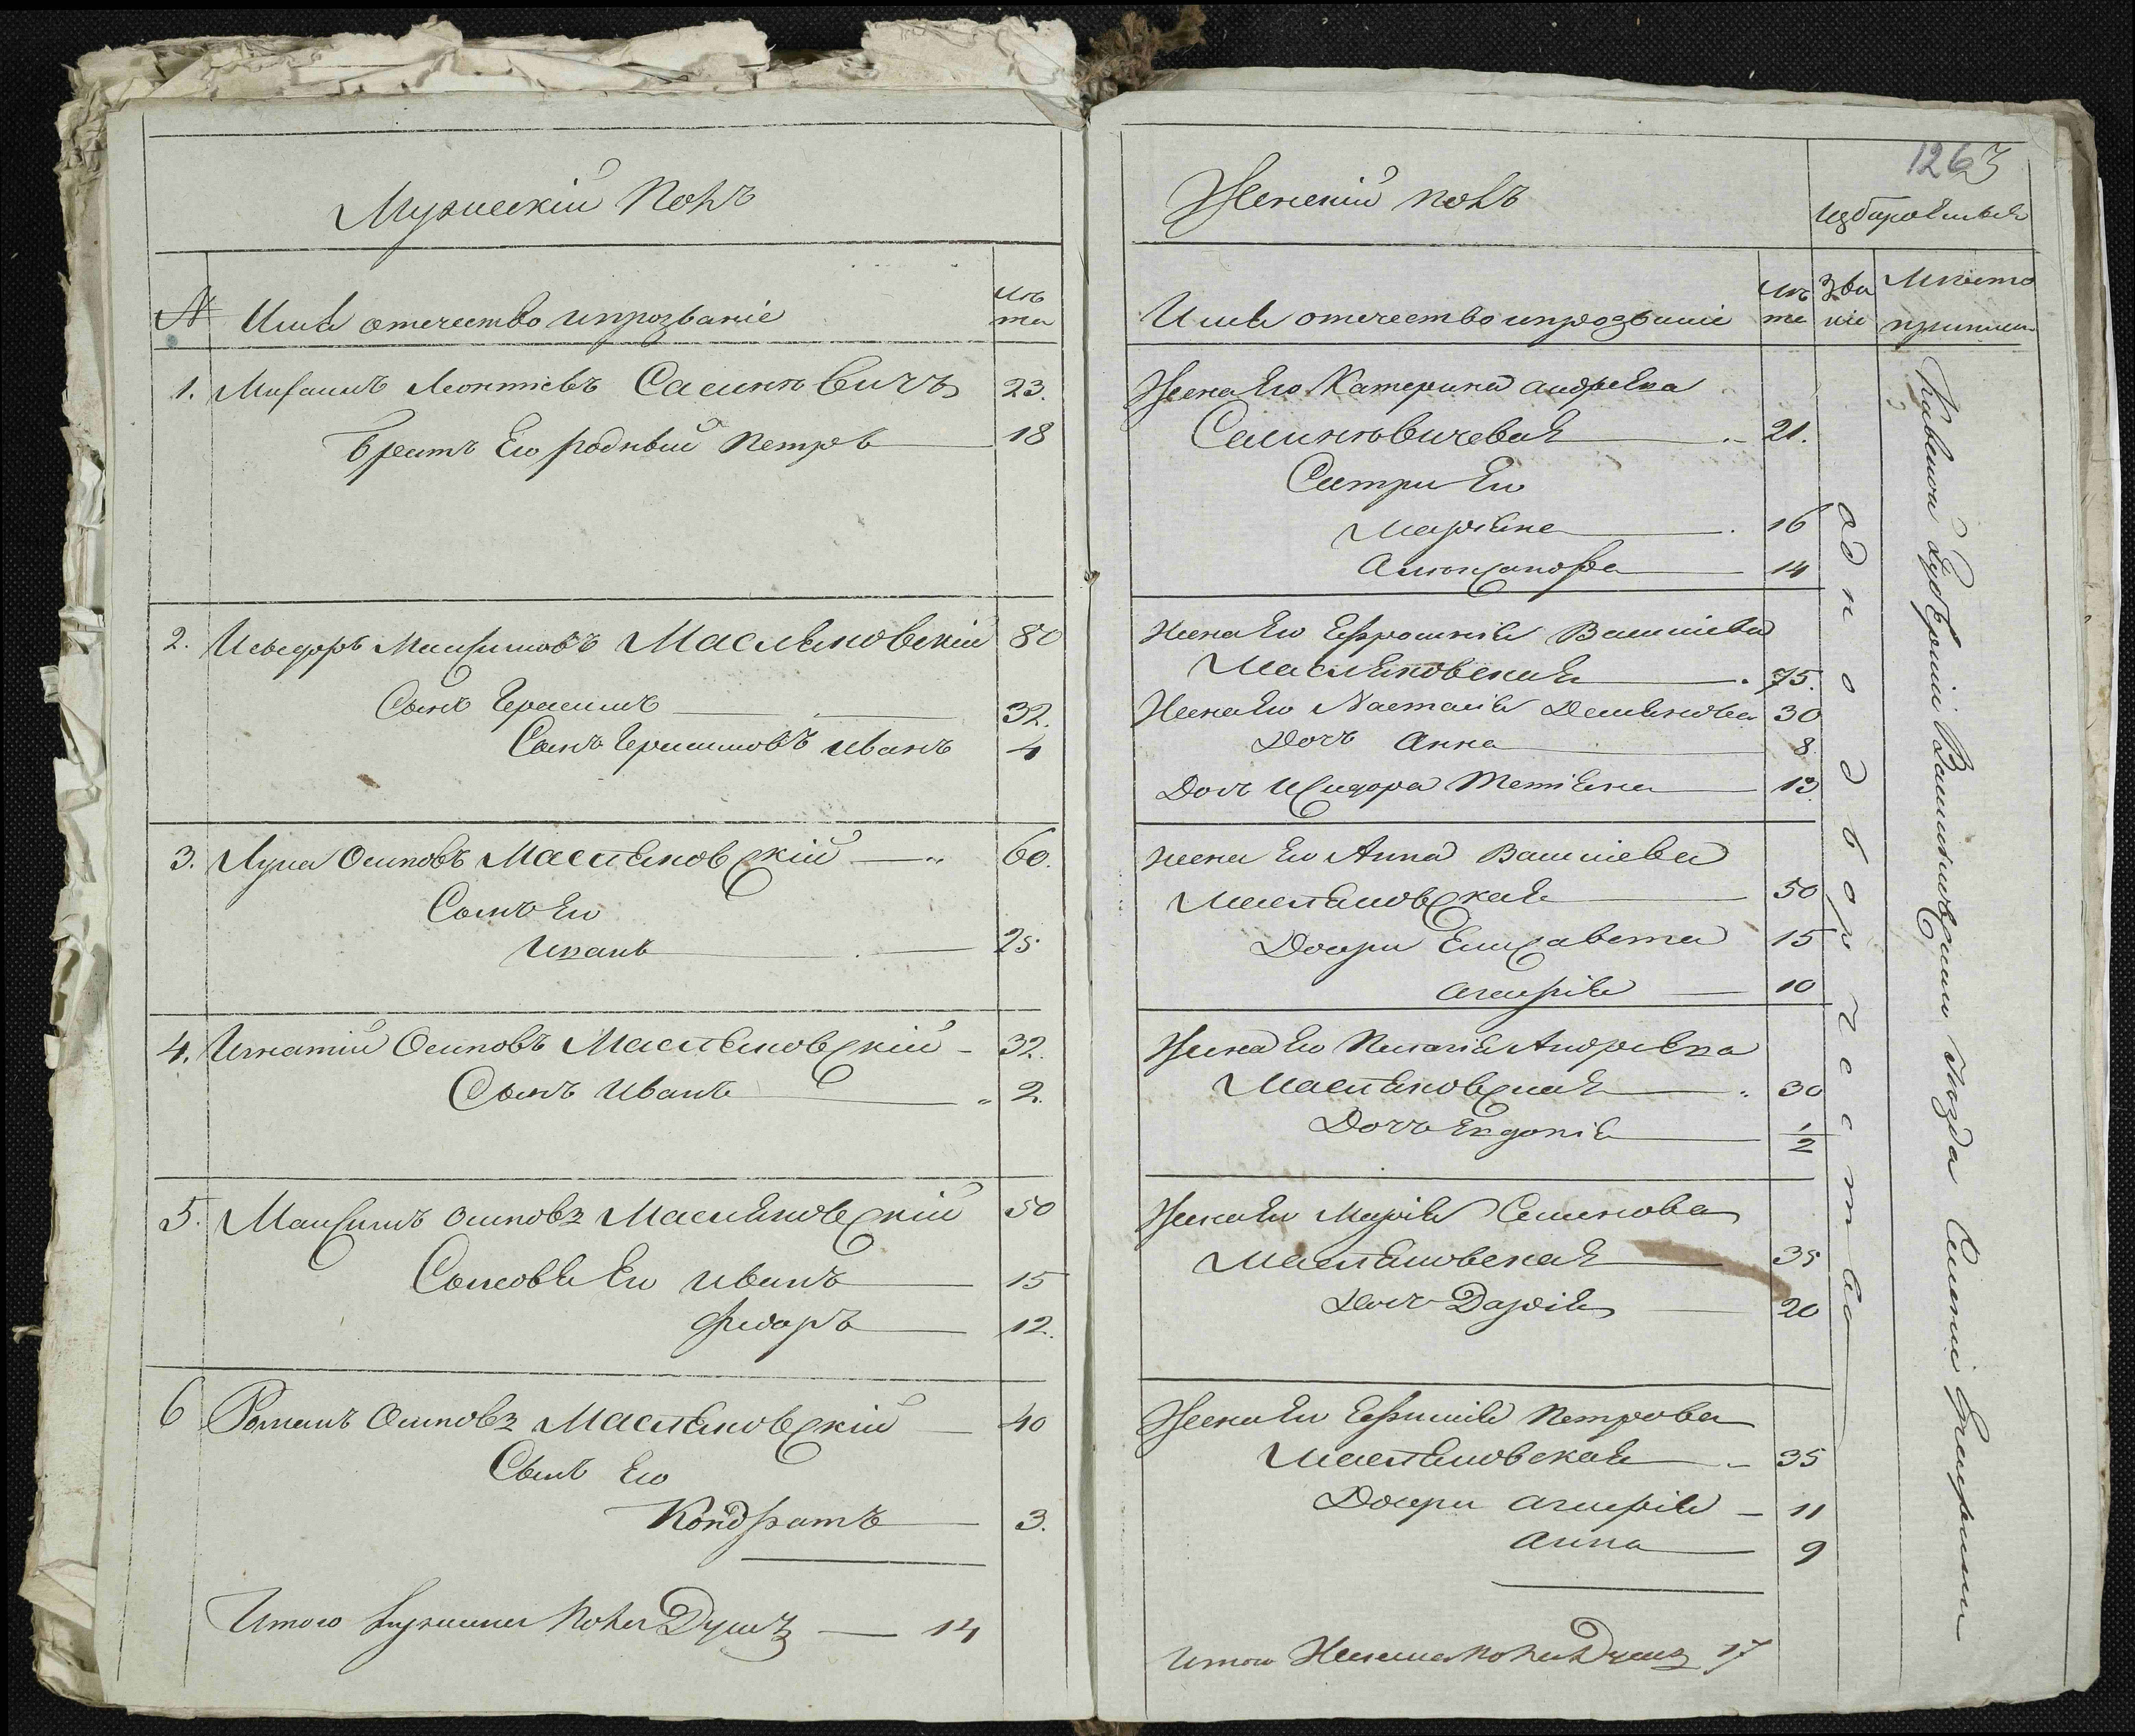 Мужескій полъ
№ Имя отечество и прозваніе Лѣта
1. Михаилъ Леонтіевъ Самиковичъ 23.
Братъ Его родный Петръ 18
2. Исидоръ Максимовъ Масляновскій 80
Сынъ Герасимъ 32.
Сынъ Герасимовъ Иванъ 4
3. Лука Осиповъ Масляновскій 60.
Сынъ Его
Иванъ 25
4. Игнатій Осиповъ Масляновскій 32.
Сынъ Иванъ 2.
5. Максимъ Осиповъ Масляновскій 50
Сыновья Его Иванъ 15
Федоръ 12.
6 Романъ Осиповъ Масляновскій 40
Сынъ Его
Кондратъ 3.
Итого мужеска пола Душъ 14
1263
Женскій полъ
Имя отечество и прозваніе Лѣта Званіе Мѣсто
Жена Его Катерина Андреева
21.
Сестри Его
Маріяна 16
Александра 14
Жена Его Ефросинія Василіева
Масляновская 75.
Жена Его Настасія Демянова 30
Дочь Анна 8
Дочь Исидора Татіяна 13
Жена Его Анна Василіева
Масляновская 50
Дочери Елисавета 15
Агафія 10
Жена Его Пелагія Андреева
Масляновская 30
Дочь Евдокія 1/2
Жена Его Марія Семенова
Масляновская 35
Дочь Дарія 20
Жена Его Ефимія Петрова
Масляновская 35
Дочери Агафія 11
Анна 9
Итого Женска пола Душъ 17
однодворчества
Кіевской Губерніи Васильковскаго уѣзда Селеніи